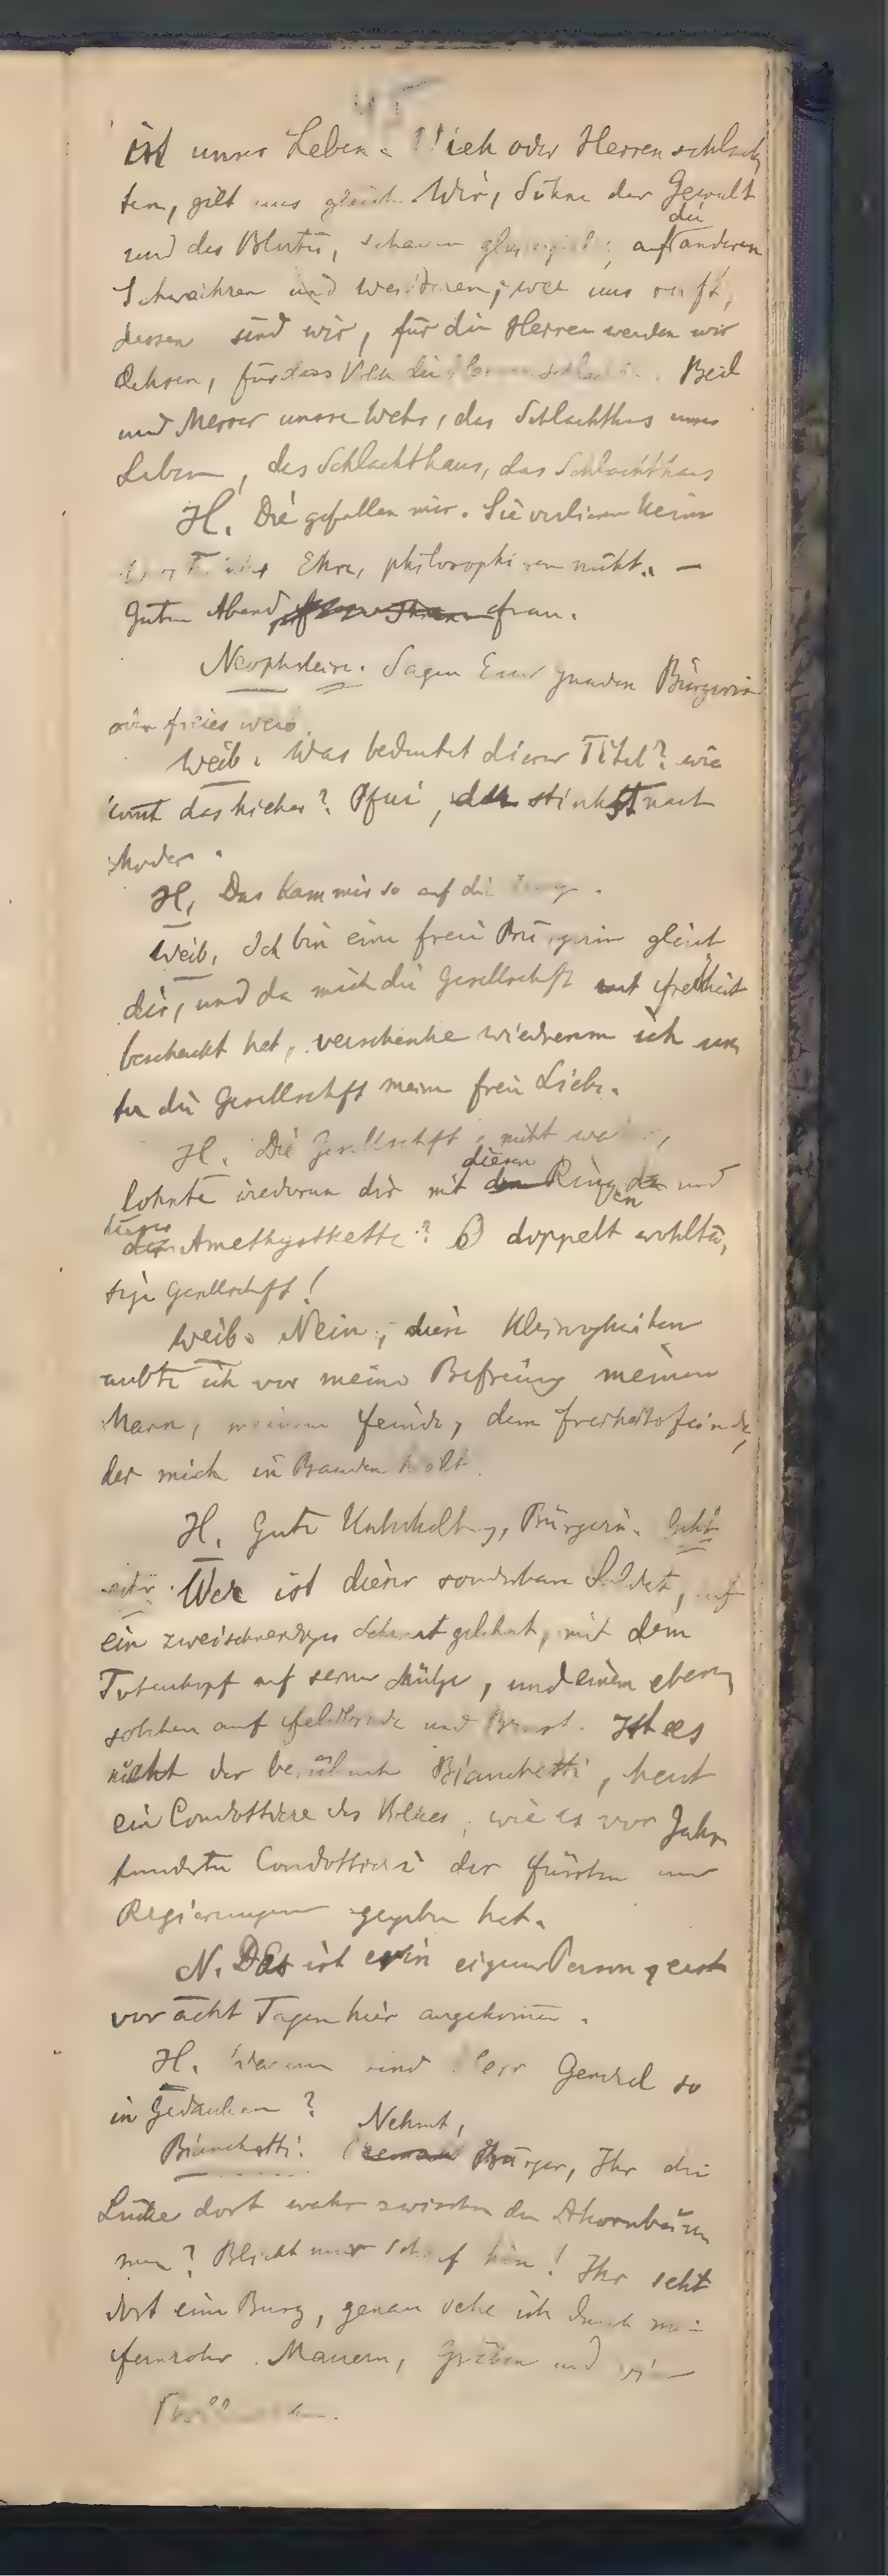 45
ist unser Leben. Vieh oder Herren schlach
ten, gilt uns gleich. Wir, Söhne der Gewalt
die
und des Blutes, schauen auf anderen
Schwachen und wer uns ruft,
dessen sind wir, für die Herren werden wir
Ochsen, für das Volk die Beil
und Messer unsre Wehr, das Schlachthaus unser
Leben, das Schlachthaus, das Schlachthaus
H. Die gefallen mir. Sie verlieren keine
Ehre, philosophiren nicht. –
Guten Abend, frau.
Neophxleire. Sagen Euer gnaden Bürgerin
oder freies weib.
Weib. Was bedeutet dieser Titel? wie
komt das hieher? Pfui, du stinkst nach
Moder.
H. Das kam mir so auf die Zunge.
Weib. Ich bin eine freie Bürgerin gleich
dir, und da mich die Gesellschaft mit freiheit
beschenkt hat, verschenke wiederum ich un
ter die Gesellschaft meine freie Liebe.
H. Die Gesellschaft, nicht wahr,
diesen
lohnte wiederum dir mit den Ringen da und
dieser
der Amethystkette? O doppelt wohltä,
tige Gesellschaft!
Weib. Nein, diese Kleinigkeiten
raubte ich vor meine Befreiung meinem
Mann, meinem feinde, dem freiheitsfeinde,
der mich in Banden hielt.
H. Gute Unterhaltung, Bürgerin. Geht
weiter. Wer ist dieser sonderbare Soldat, auf
ein zweischneidiges Schwert gelehnt, mit dem
Totenkopf auf seiner Mütze, und einem eben
solchen auf feldbinde und Brust. Ist es
nicht der berühmte Bianchetti, heut
ein Condottiere des Volkes, wie es vor Jahr
hunderten Condottieri der fürsten und
Regierungen gegeben hat.
N. Das ist er in eigner Person, erst
vor acht Tagen hier angekomen.
H. Warum sind Herr General so
in Gedanken?
Nehmt,
Bianchetti. Bürger, Ihr die
Lücke dort wahr zwischen den Ahornbäu
men? Blickt nur scharf hin! Ihr seht
dort eine Burg, genau sehe ich durch mein
fernrohr Mauern, Gräben und vier